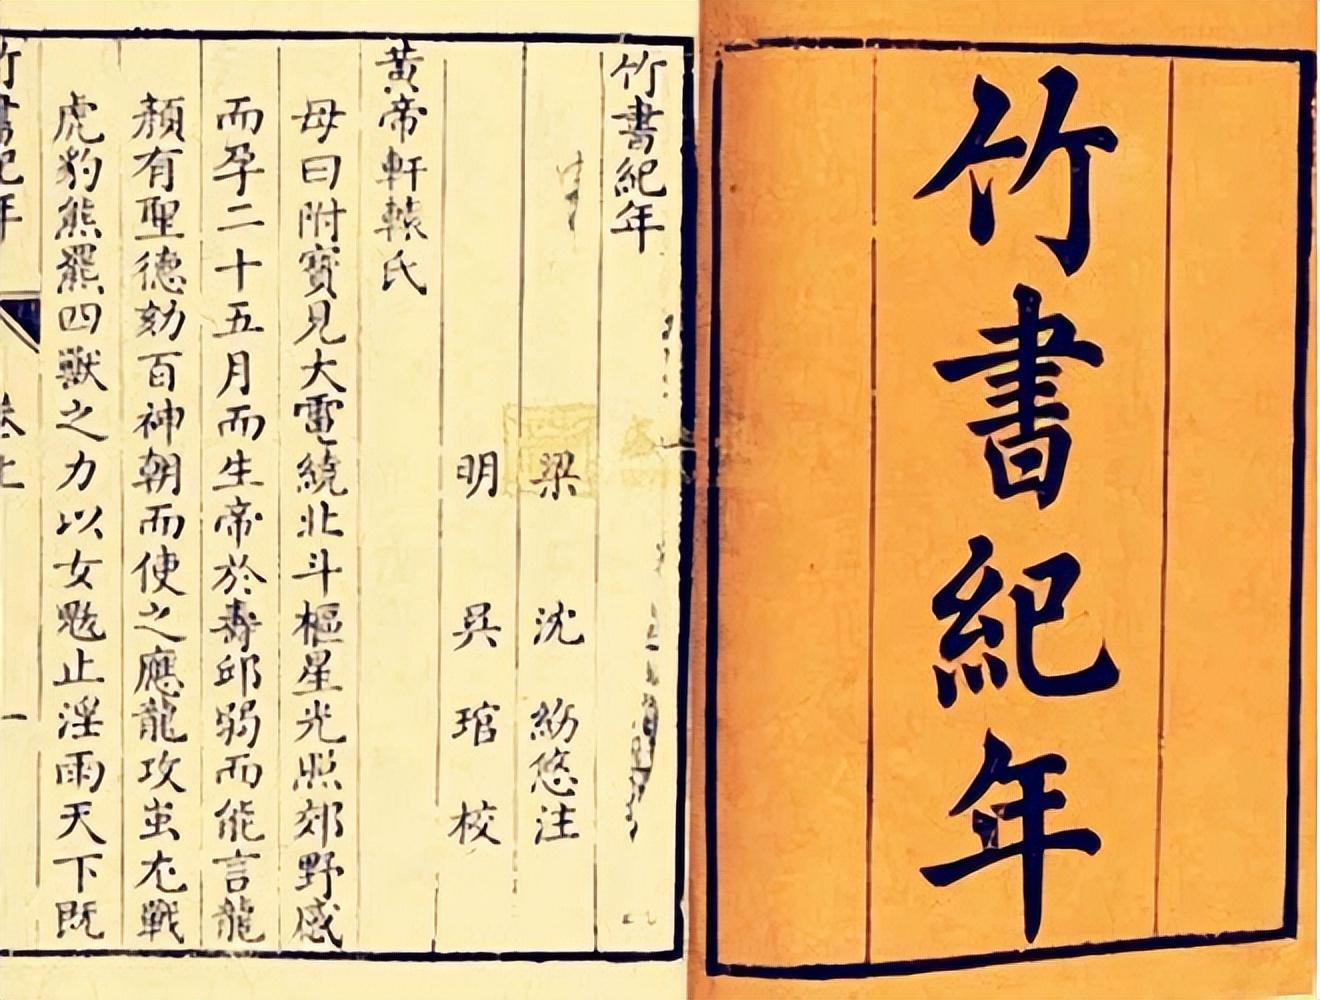 竹書紀年
竹書紀年
梁 沈 約悠注
明 吳 琯 校
黃帝軒轅氏
母曰附寶見大電繞北斗樞星光照郊野感
而孕二十五月而生帝於壽邱弱而能言龍
顏有聖德劾百神朝而使之應龍攻蚩尤戰
虎豹熊羆四獸之力以女魃止淫雨天下既
竹書紀年 卷上 一